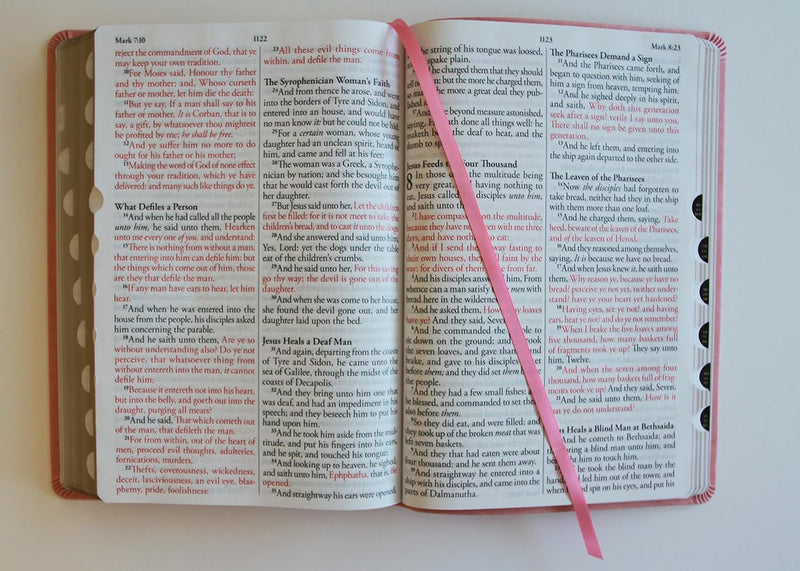 Mark 7:10
1122
reject the commandment of God, that ye
may keep your own tradition.
10For Moses said, Honour thy father
and thy mother; and, Whoso curseth
father or mother, let him die the death:
11But ye say, If a man shall say to his
father or mother, It is Corban, that is to
say, a gift, by whatsoever thou mightest
be profited by me; he shall be free.
12And ye suffer him no more to do
ought for his father or his mother;
13Making the word of God of none effect
through your tradition, which ye have
delivered: and many such like things do ye.
What Defiles a Person
14And when he had called all the people
unto him, he said unto them, Hearken
unto me every one of you, and understand:
15There is nothing from without a man,
that entering into him can defile him: but
the things which come out of him, those
are they that defile the man.
16If any man have ears to hear, let him
hear.
17And when he was entered into the
house from the people, his disciples asked
him concerning the parable.
18And he saith unto them, Are ye so
without understanding also? Do ye not
perceive, that whatsoever thing from
without entereth into the man, it cannot
defile him;
19Because it entereth not into his heart,
but into the belly, and goeth out into the
draught, purging all meats?
20And he said, That which cometh out
of the man, that defileth the man.
21For from within, out of the heart of
men, proceed evil thoughts, adulteries,
fornications, murders,
22Thefts, covetousness, wickedness,
deceit, lasciviousness, an evil eye, blas-
phemy, pride, foolishness:
23All these evil things come from
within, and defile the man.
The Syrophenician Woman's Faith
24And from thence he arose, and went
into the borders of Tyre and Sidon, and
entered into an house, and would have
no man know it: but he could not be hid.
25For a certain woman, whose young
daughter had an unclean spirit, heard of
him, and came and fell at his feet:
26The woman was a Greek, a Syrophe-
nician by nation; and she besought him
that he would cast forth the devil out of
her daughter.
27But Jesus said unto her, Let the children
first be filled: for it is not meet to take the
children's bread, and to cast it unto the dogs.
28And she answered and said unto him,
Yes, Lord: yet the dogs under the table
eat of the children's crumbs.
29And he said unto her, For this saying
go thy way; the devil is gone out of thy
daughter.
30And when she was come to her house,
she found the devil gone out, and her
daughter laid upon the bed.
Jesus Heals a Deaf Man
31And again, departing from the coasts
of Tyre and Sidon, he came unto the
sea of Galilee, through the midst of the
coasts of Decapolis.
32And they bring unto him one that
was deaf, and had an impediment in his
speech; and they beseech him to put his
hand upon him.
33And he took him aside from the mul-
titude, and put his fingers into his ears,
and he spit, and touched his tongue;
34And looking up to heaven, he sighed,
and saith unto him, Ephphatha, that is, Be
opened.
35And straightway his ears were opened,
1123
Mark 8:23
the string of his tongue was loosed,
spake plain.
he charged them that they should
man: but the more he charged them,
the more a great deal they pub-
lished
beyond measure astonished,
saying, hath done all things well: he
maketh the deaf to hear, and the
dumb to
Jesus Feeds Four Thousand
8 In those the multitude being
very great, having nothing to
eat, Jesus called disciples unto him,
and saith unto
2I have compassion on the multitude,
because they have been with me three
days, and have nothing to eat:
3And if I send them away fasting to
their own houses, they will faint by the
way: for divers of them came from far.
4And his disciples him, From
whence can a man satisfy these men with
bread here in the wilderness
5And he asked them, How many loaves
have ye? And they said, Seven.
6And he commanded the people to
sit down on the ground: and he took
the seven loaves, and gave thanks, and
brake, and gave to his disciples to set
before them; and they did set them before
the people.
7And they had a few small fishes: and
he blessed, and commanded to set them
also before them.
8So they did eat, and were filled: and
they took up of the broken meat that was
left seven baskets.
9And they that had eaten were about
four thousand: and he sent them away.
10And straightway he entered into a
ship with his disciples, and came into the
parts of Dalmanutha.
The Pharisees Demand a Sign
11And the Pharisees came forth, and
began to question with him, seeking of
him a sign from heaven, tempting him.
12And he sighed deeply in his spirit,
and saith, Why doth this generation
seek after a sign? verily I say unto you,
There shall no sign be given unto this
generation.
13And he left them, and entering into
the ship again departed to the other side.
The Leaven of the Pharisees
14Now the disciples had forgotten to
take bread, neither had they in the ship
with them more than one loaf.
15And he charged them, saying, Take
heed, beware of the leaven of the Pharisees,
and of the leaven of Herod.
16And they reasoned among themselves,
saying, It is because we have no bread.
17And when Jesus knew it, he saith unto
them, Why reason ye, because ye have no
bread? perceive ye not yet, neither under-
stand? have ye your heart yet hardened?
18Having eyes, see ye not? and having
ears, hear ye not? and do ye not remember?
19When I brake the five loaves among
five thousand, how many baskets full
of fragments took ye up? They say unto
him, Twelve.
20And when the seven among four
thousand, how many baskets full of frag-
ments took ye up? And they said, Seven.
21And he said unto them, How is it
that ye do not understand?
Jesus Heals a Blind Man at Bethsaida
22And he cometh to Bethsaida; and
they bring a blind man unto him, and
besought him to touch him.
23And he took the blind man by the
hand, and led him out of the town; and
when he had spit on his eyes, and put his